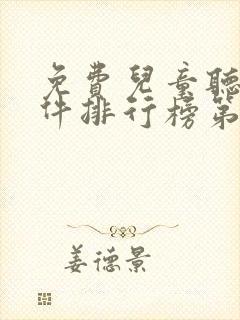 免費兒童聽
件排行榜第
姜德景